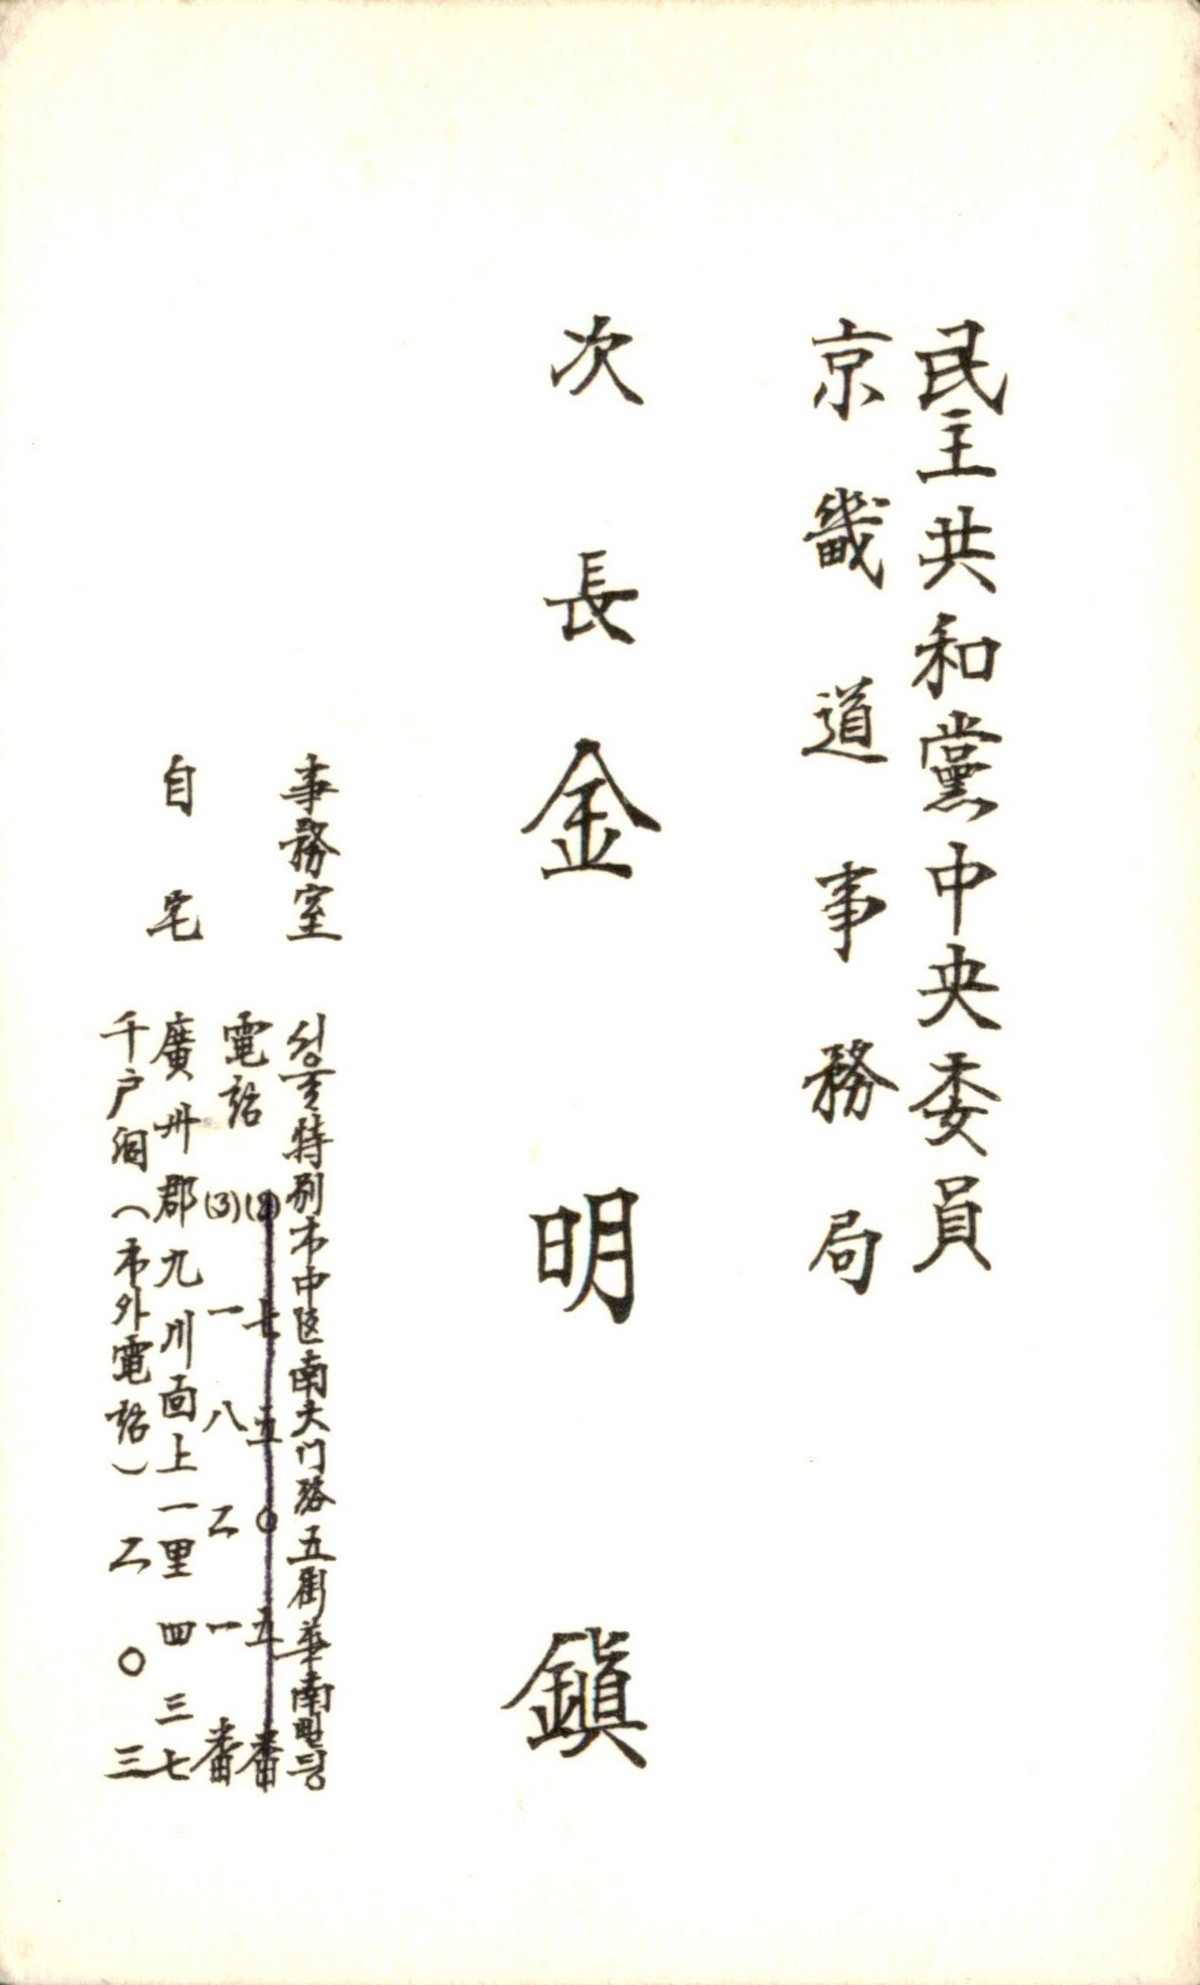 民主共和黨中央委員
京畿道事務局
次長 金明鎭
事務室 서울特别市中区南大门路五街華南삘딩
電話 (2)七五〇五番
(3)一八二一番
自宅 廣州郡九川面上一里四三七
千戸洞(市外電話)二〇三